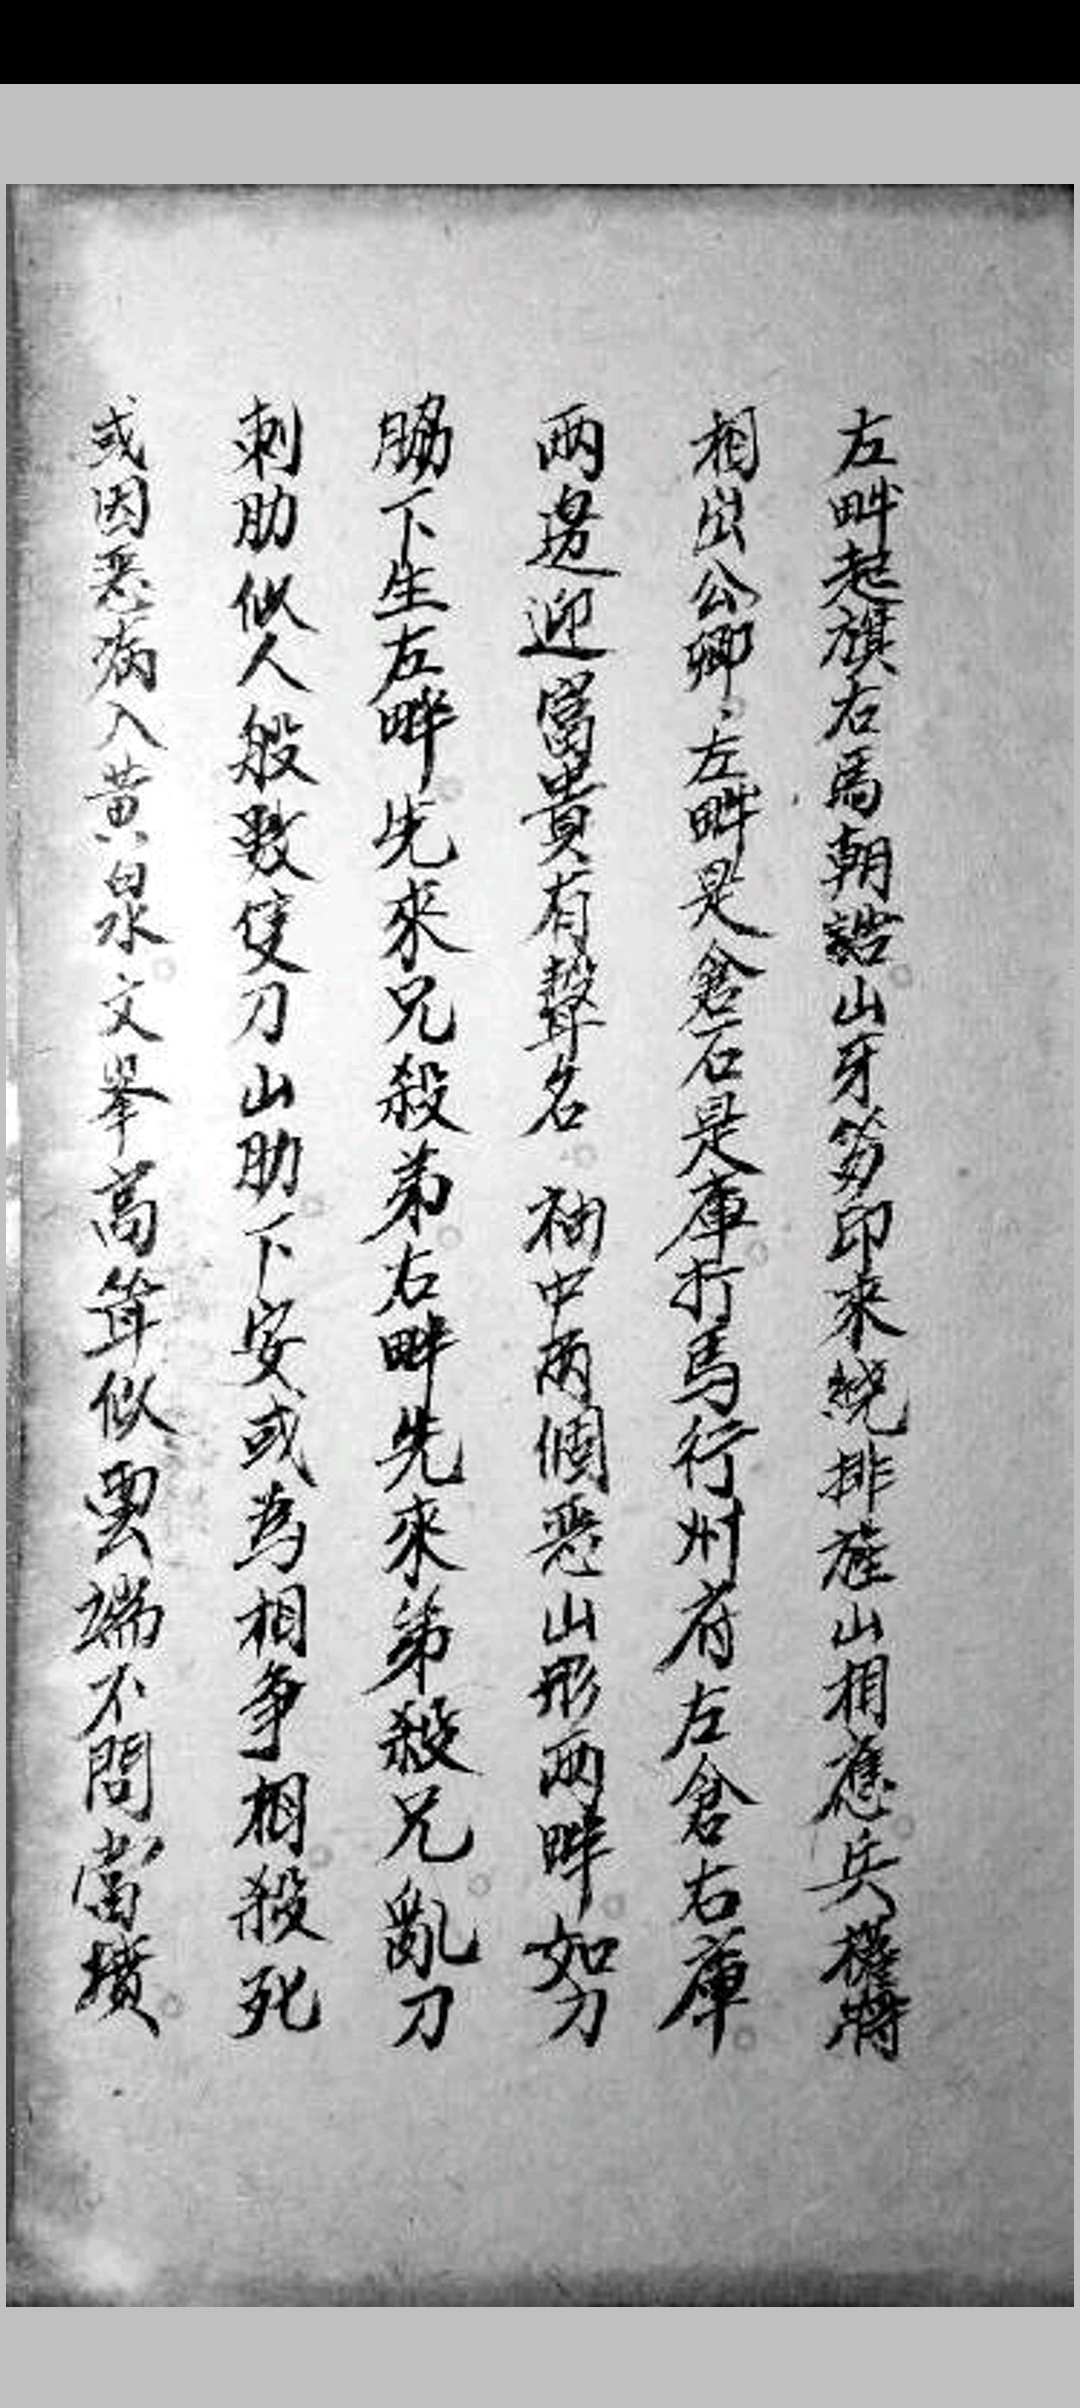 左畔起旗右馬朝誥山牙笏印来繞排旌山相應兵權將
相出公卿左畔是倉右是庫打馬行州府左倉右庫
兩邊迎富貴有聲名袖中両個惡山形兩畔如刀
脇下生左畔先來兄殺弟右畔先來弟殺兄亂刀
刺肋似人般數隻刀山肋下安或為相争相殺死
或因惡病入黃泉文峯高聳似雲端不問當墳